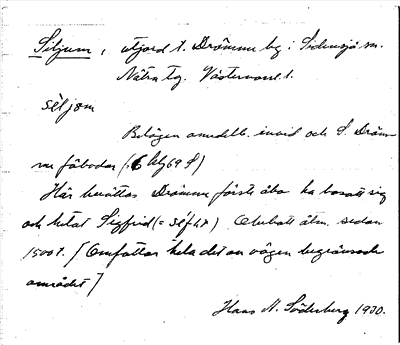 Siljum, utjord t. Drömme by i Sidensjö sn.
Nätra tg. Västernorrl. l.
séljom
Belägen omedelb. invid och S. Dröm-
me fäbodar (.6 blz 69 S)
Här berättas Drömme första åbo ha bosatt sig
och hetat Sigfrid (= ) Obebott åtm. sedan
1500 t. [Omfattar hela det av vägen begränsade
området]
Hans N. Söderberg 1930.